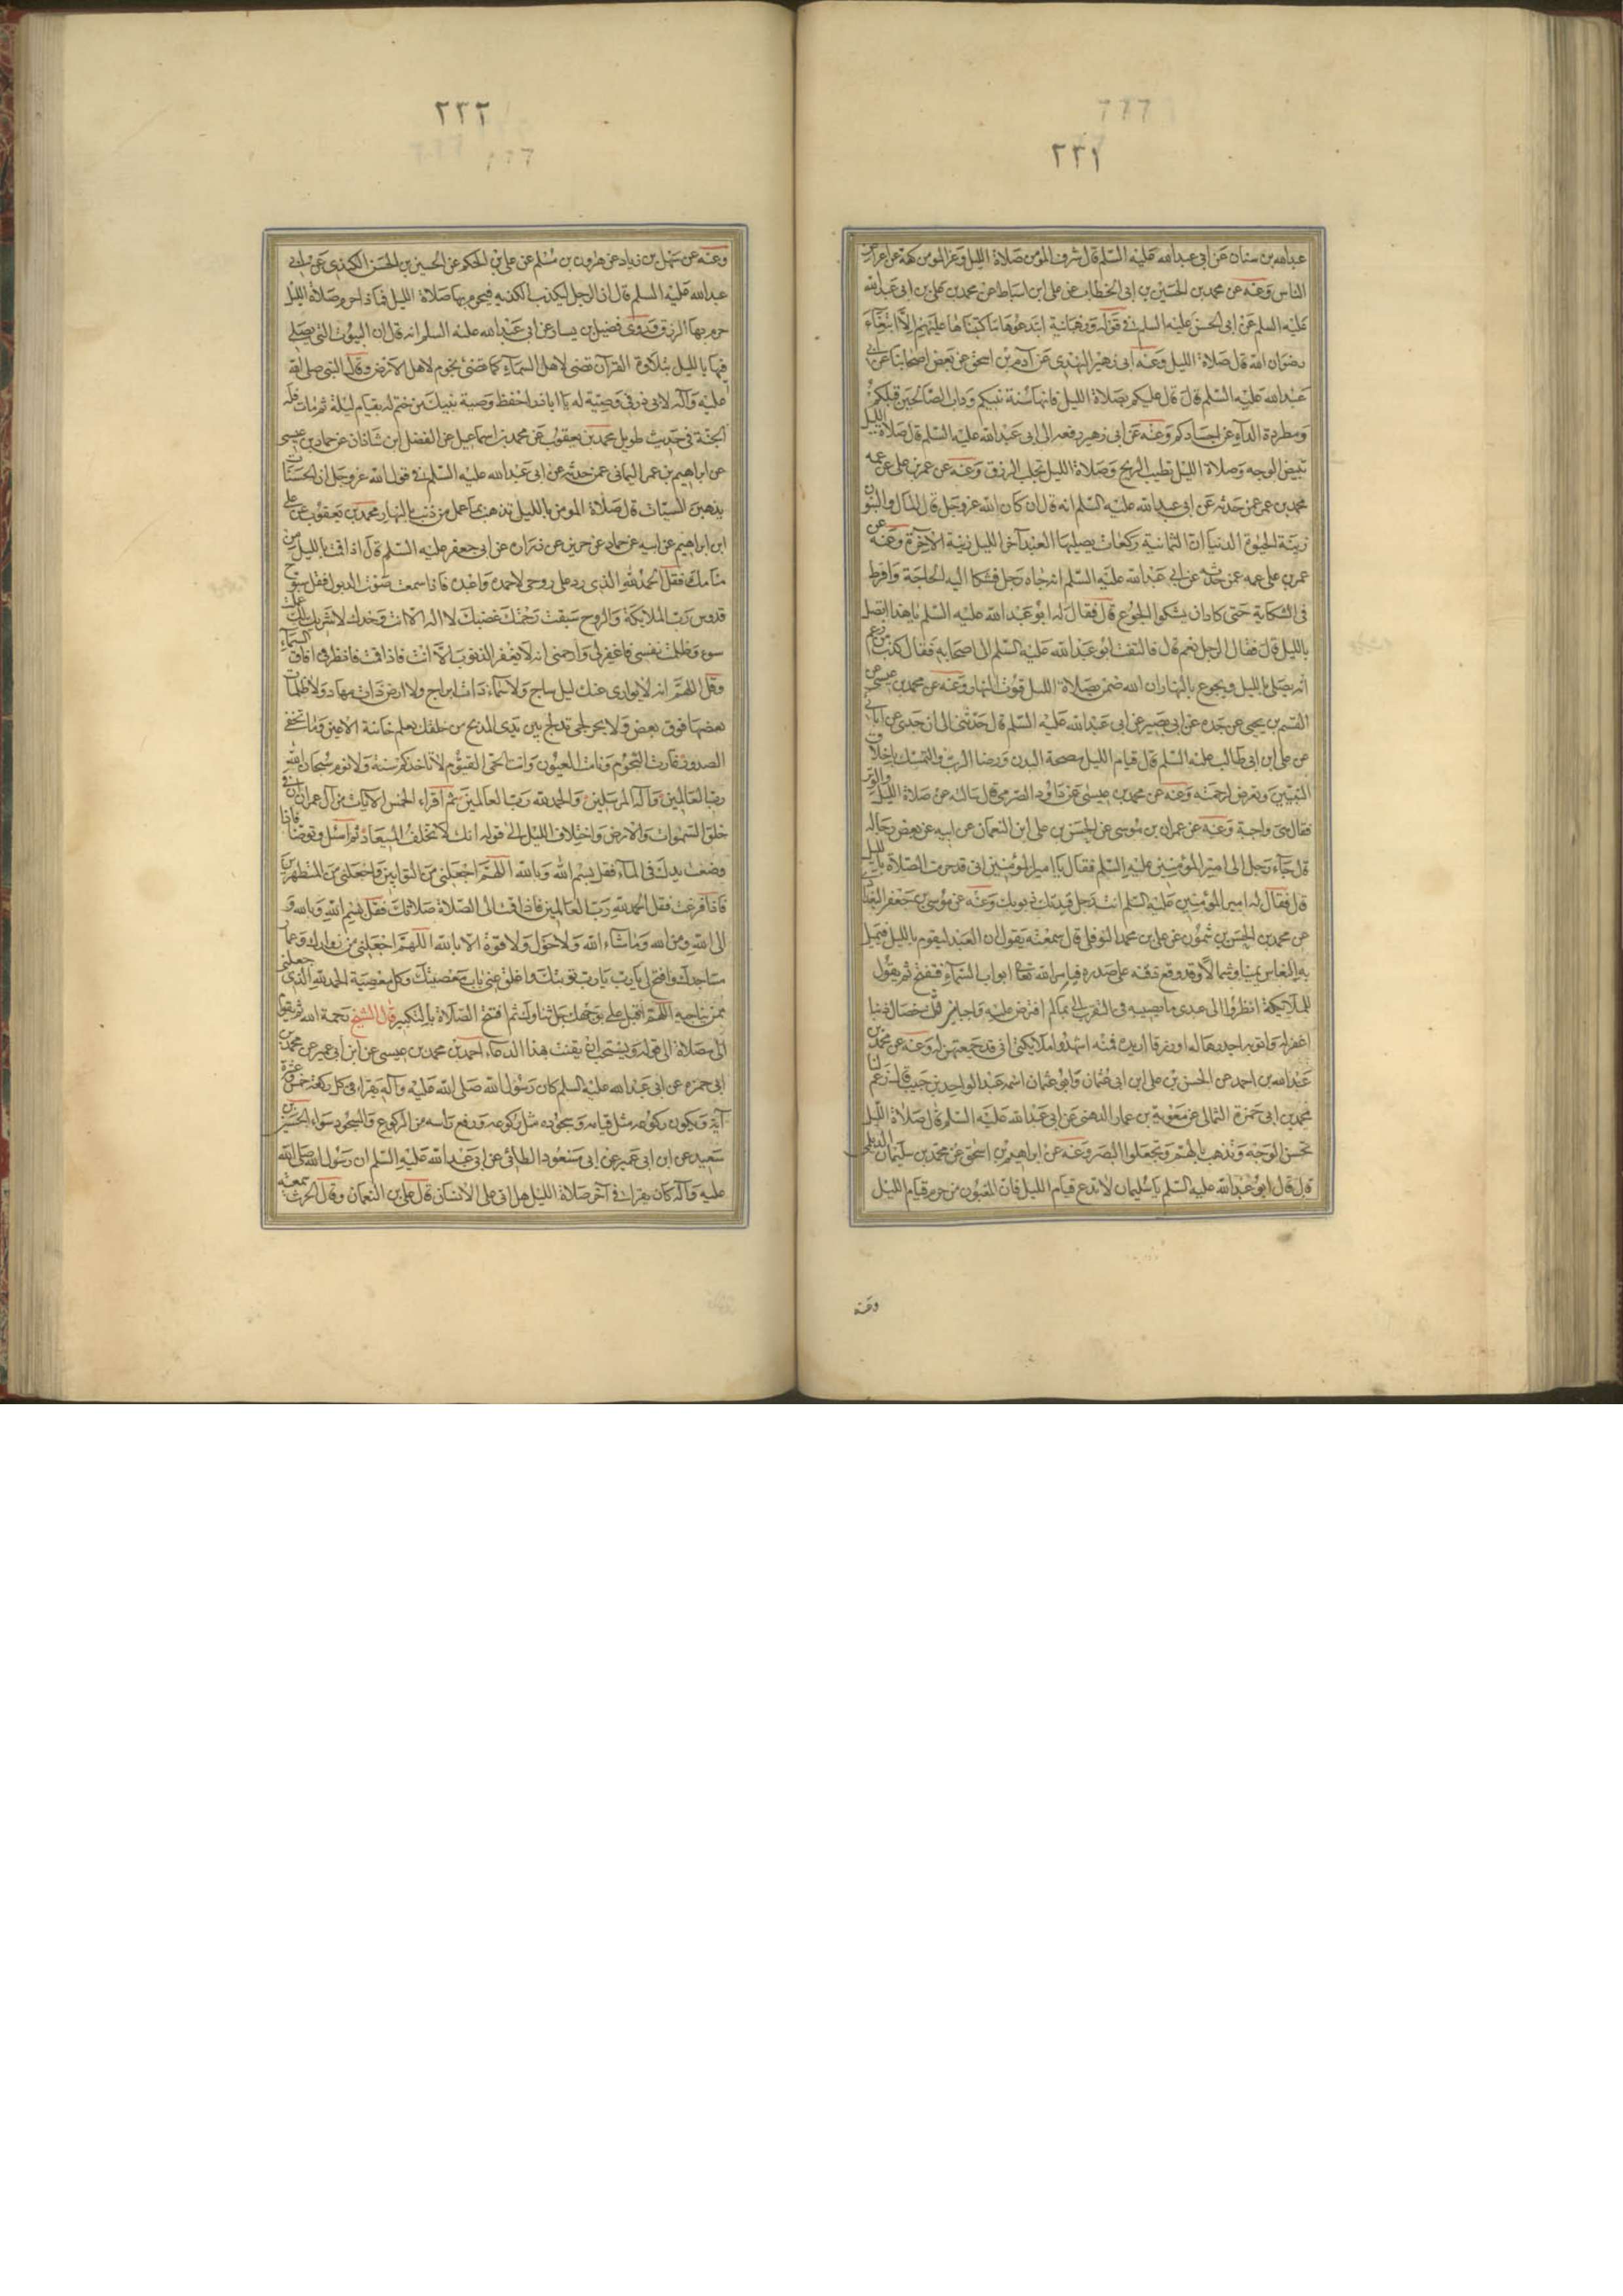 ٢٢١
عبدالله بن سنان عن ابى عبدالله عليه السلم قال شرف المؤمن صلاة الليل وعز المؤمن كفه عن اعراض
الناس وعنه عن محمد بن الحسين بن ابى الخطاب عن على ابن اسباط عن محمد بن على بن ابى عبدالله
عليه السلم عن ابى الحسن عليه السلم فى قوله ورهبانية ابتدعوها ما كتبناها عليهم الا ابتغاء
رضوان الله قال صلاة الليل وعنه ابى زهير النهدى عن آدم بن اسحق عن بعض اصحابنا عن ابى
عبدالله عليه السلم قال قال عليكم بصلاة الليل فانها سنة نبيكم ودأب الصالحين قبلكم
ومطردة الداء عن اجسادكم وعنه عن ابى زهير رفعه الى ابى عبدالله عليه السلم قال صلاة الليل
تبيض الوجه وصلاة الليل تطيب الريح وصلاة الليل تجلب الرزق وعنه عن عمر بن على عن عمه
محمد بن عمر عمن حدثه عن ابى عبدالله عليه السلم انه قال ان كان الله عز وجل قال المال والبنون
زينة الحيوة الدنيا ان الثمانية ركعات يصليها العبد آخر الليل زينة الآخرة وعنه عن
عمر بن على عمه عمن حدثه عن ابى عبدالله عليه السلم انه جاءه رجل فشكا اليه الحاجة وافرط
فى الشكاية حتى كاد ان يشكوا الجوع قال فقال له ابو عبدالله عليه السلم يا هذا اتصلى
بالليل قال فقال الرجل نعم قال فالتفت ابو عبدالله عليه السلم الى اصحابه فقال كذب من زعم
انه يصلى بالليل ويجوع بالنهار ان الله ضمن بصلاة الليل قوت النهار وعنه عن محمد بن عيسى عن
القسم بن يحيى عن جده عن ابى بصير عن ابى عبدالله عليه السلم قال حدثنى ابى عن جدى عن آبائه
عن على ابن ابى طالب عليه السلم قال قيام الليل مصحة البدن ورضا الرب والتمسك باخلاق
النبيين وتعرض لرحمته وعنه عن محمد بن عيسى عن داود الصرمى قال سالته عن صلاة الليل والوتر
فقال هى واجبة وعنه عن عمران بن موسى عن الحسن بن على ابن النعمان عن ابيه عن بعض رجاله
قال جاء رجل الى امير المؤمنين عليه السلم فقال يا امير المؤمنين انى قد حرمت الصلاة بالليل
قال فقال له امير المؤمنين عليه السلم انت رجل قيدتك ذنوبك وعنه عن موسى بن جعفر البغدادى
عن محمد بن الحسن بن شمون عن على بن محمد النوفلى قال سمعته يقول ان العبد ليقوم بالليل فيميل
به النعاس يمينا وشمالا وقد وقع ذقنه على صدره فيامر الله تعالى ابواب السماء فتفتح ثم يقول
للملائكة انظروا الى عبدى ما يصيبه فى التقرب الى بما لم افترض عليه راجيا منى ثلث خصال ذنبا
اغفر له او توبة اجددها له او رزقا ازيده فيه اشهدوا ملائكتى انى قد جمعتهن له وعنه عن محمد بن
عبدالله بن احمد عن الحسن بن على ابن ابى عثمان وابو عثمان اسمه عبد الواحد بن حبيب قال زعم لنا
محمد بن ابى حمزة الثمالى عن معوية بن عمار الدهنى عن ابى عبدالله عليه السلم قال صلاة الليل
تحسن الوجه وتذهب بالهم وتجلوا البصر وعنه عن ابراهيم بن اسحق عن محمد بن سليمان الديلمى
قال قال ابو عبدالله عليه السلم يا سليمان لا تدع قيام الليل فان المغبون من حرم قيام الليل
وعنه
٢٢٢
وعنه عن سهل بن زياد عن هرون بن مسلم عن على بن الحكم عن الحسين بن الحسن الكندى عن ابى
عبدالله عليه السلم قال ان الرجل ليكذب الكذبة فيحرم بها صلاة الليل فاذا حرم صلاة الليل
حرم بها الرزق وروى فضيل بن يسار عن ابى عبدالله عليه السلم انه قال ان البيوت التى يصلى
فيها بالليل بتلاوة القرآن تضئ لاهل السماء كما تضئ نجوم لاهل الارض وقال النبى صلى الله
عليه وآله لابى ذر فى وصيته له يا ابا ذر احفظ وصية نبيك من ختم له بقيام ليلة ثم مات فله
الجنة فى حديث طويل محمد بن يعقوب عن محمد بن اسماعيل عن الفضل ابن شاذان عن حماد بن عيسى
عن ابراهيم بن عمر اليمانى عمن حدثه عن ابى عبدالله عليه السلم فى قول الله عز وجل ان الحسنات
يذهبن السيئات قال صلاة المؤمن بالليل تذهب بما عمل من ذنب بالنهار محمد بن يعقوب عن على
ابن ابراهيم عن ابيه عن حماد عن حريز عن زرارة عن ابى جعفر عليه السلم قال اذا قمت بالليل من
منامك فقل الحمد لله الذى رد على روحى لاحمده واعبده فاذا سمعت صوت الديول فقل سبوح
قدوس رب الملائكة والروح سبقت رحمتك غضبك لا اله الا انت وحدك لا شريك لك عملت
سوء وظلمت نفسى فاغفر لى وارحمنى انه لا يغفر الذنوب الا انت فاذا قمت فانظر فى آفاق السماء
وقل اللهم انه لا يوارى عنك ليل ساج ولا سماء ذات ابراج ولا ارض ذات مهاد ولا ظلمات
بعضها فوق بعض ولا بحر لجى تدلج بين يدى المدلج من خلقك تعلم خائنة الاعين وما تخفى
الصدور غارت النجوم ونامت العيون وانت الحى القيوم لا تاخذك سنة ولا نوم سبحان الله
رب العالمين وآله المرسلين والحمد لله رب العالمين ثم اقراء الخمس الآيات من آل عمران ان فى
خلق السموات والارض واختلاف الليل الى قوله انك لا تخلف الميعاد ثم استك وتوضأ فاذا
وضعت يدك فى الماء فقل بسم الله وبالله اللهم اجعلنى من التوابين واجعلنى من المتطهرين
فاذا فرغت فقل الحمد لله رب العالمين فاذا قمت الى الصلاة صلاتك فقل بسم الله وبالله و
الى الله ومن الله وما شاء الله ولا حول ولا قوة الا بالله اللهم اجعلنى من زوارك وعمار
مساجدك وافتح لى يا رب يا رب توبتك واغلق عنى باب معصيتك وكل معصية الحمد لله الذى جعلنى
ممن يناجيه اللهم اقبل على بوجهك جل ثناؤك ثم افتتح الصلاة بالتكبير قال الشيخ رحمة الله ثم يقوم
الى صلاة الى قوله ويستحب ان يقنت بهذا الدعاء احمد بن محمد بن عيسى عن ابن ابى عمير عن محمد بن
ابى حمزه عن ابى عبدالله عليه السلم كان رسول الله صلى الله عليه وآله يقراء فى كل ركعة خمس عشرة
آية ويكون ركوعه مثل قيامه وسجوده مثل ركوعه ورفع راسه من الركوع والسجود سواء الحسين بن
سعيد عن ابن ابى عمير عن ابى مسعود الطائى عن ابى عبدالله عليه السلم ان رسول الله صلى الله
عليه وآله كان يقراء فى آخر صلاة الليل هل اتى على الانسان قال على بن النعمان وقال الحرث سمعته